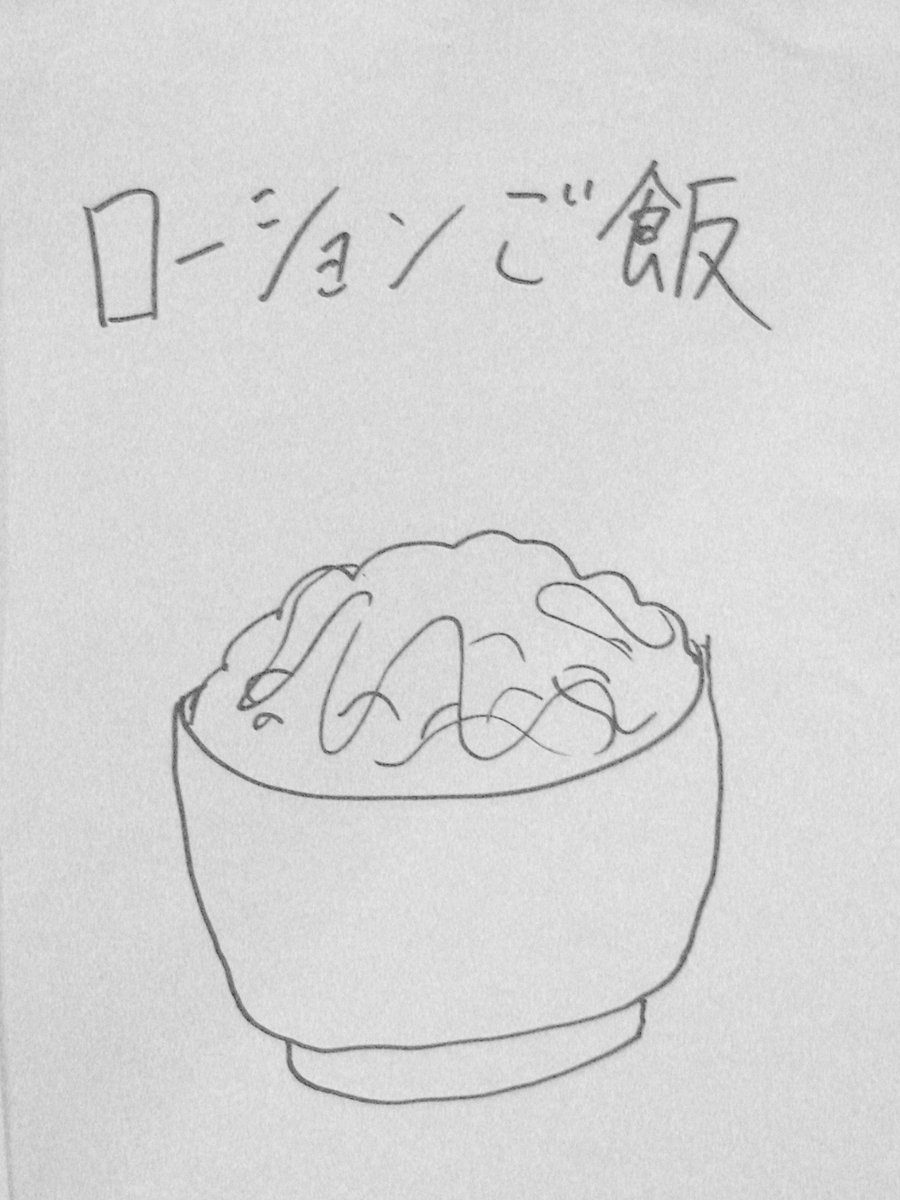 ローションご飯